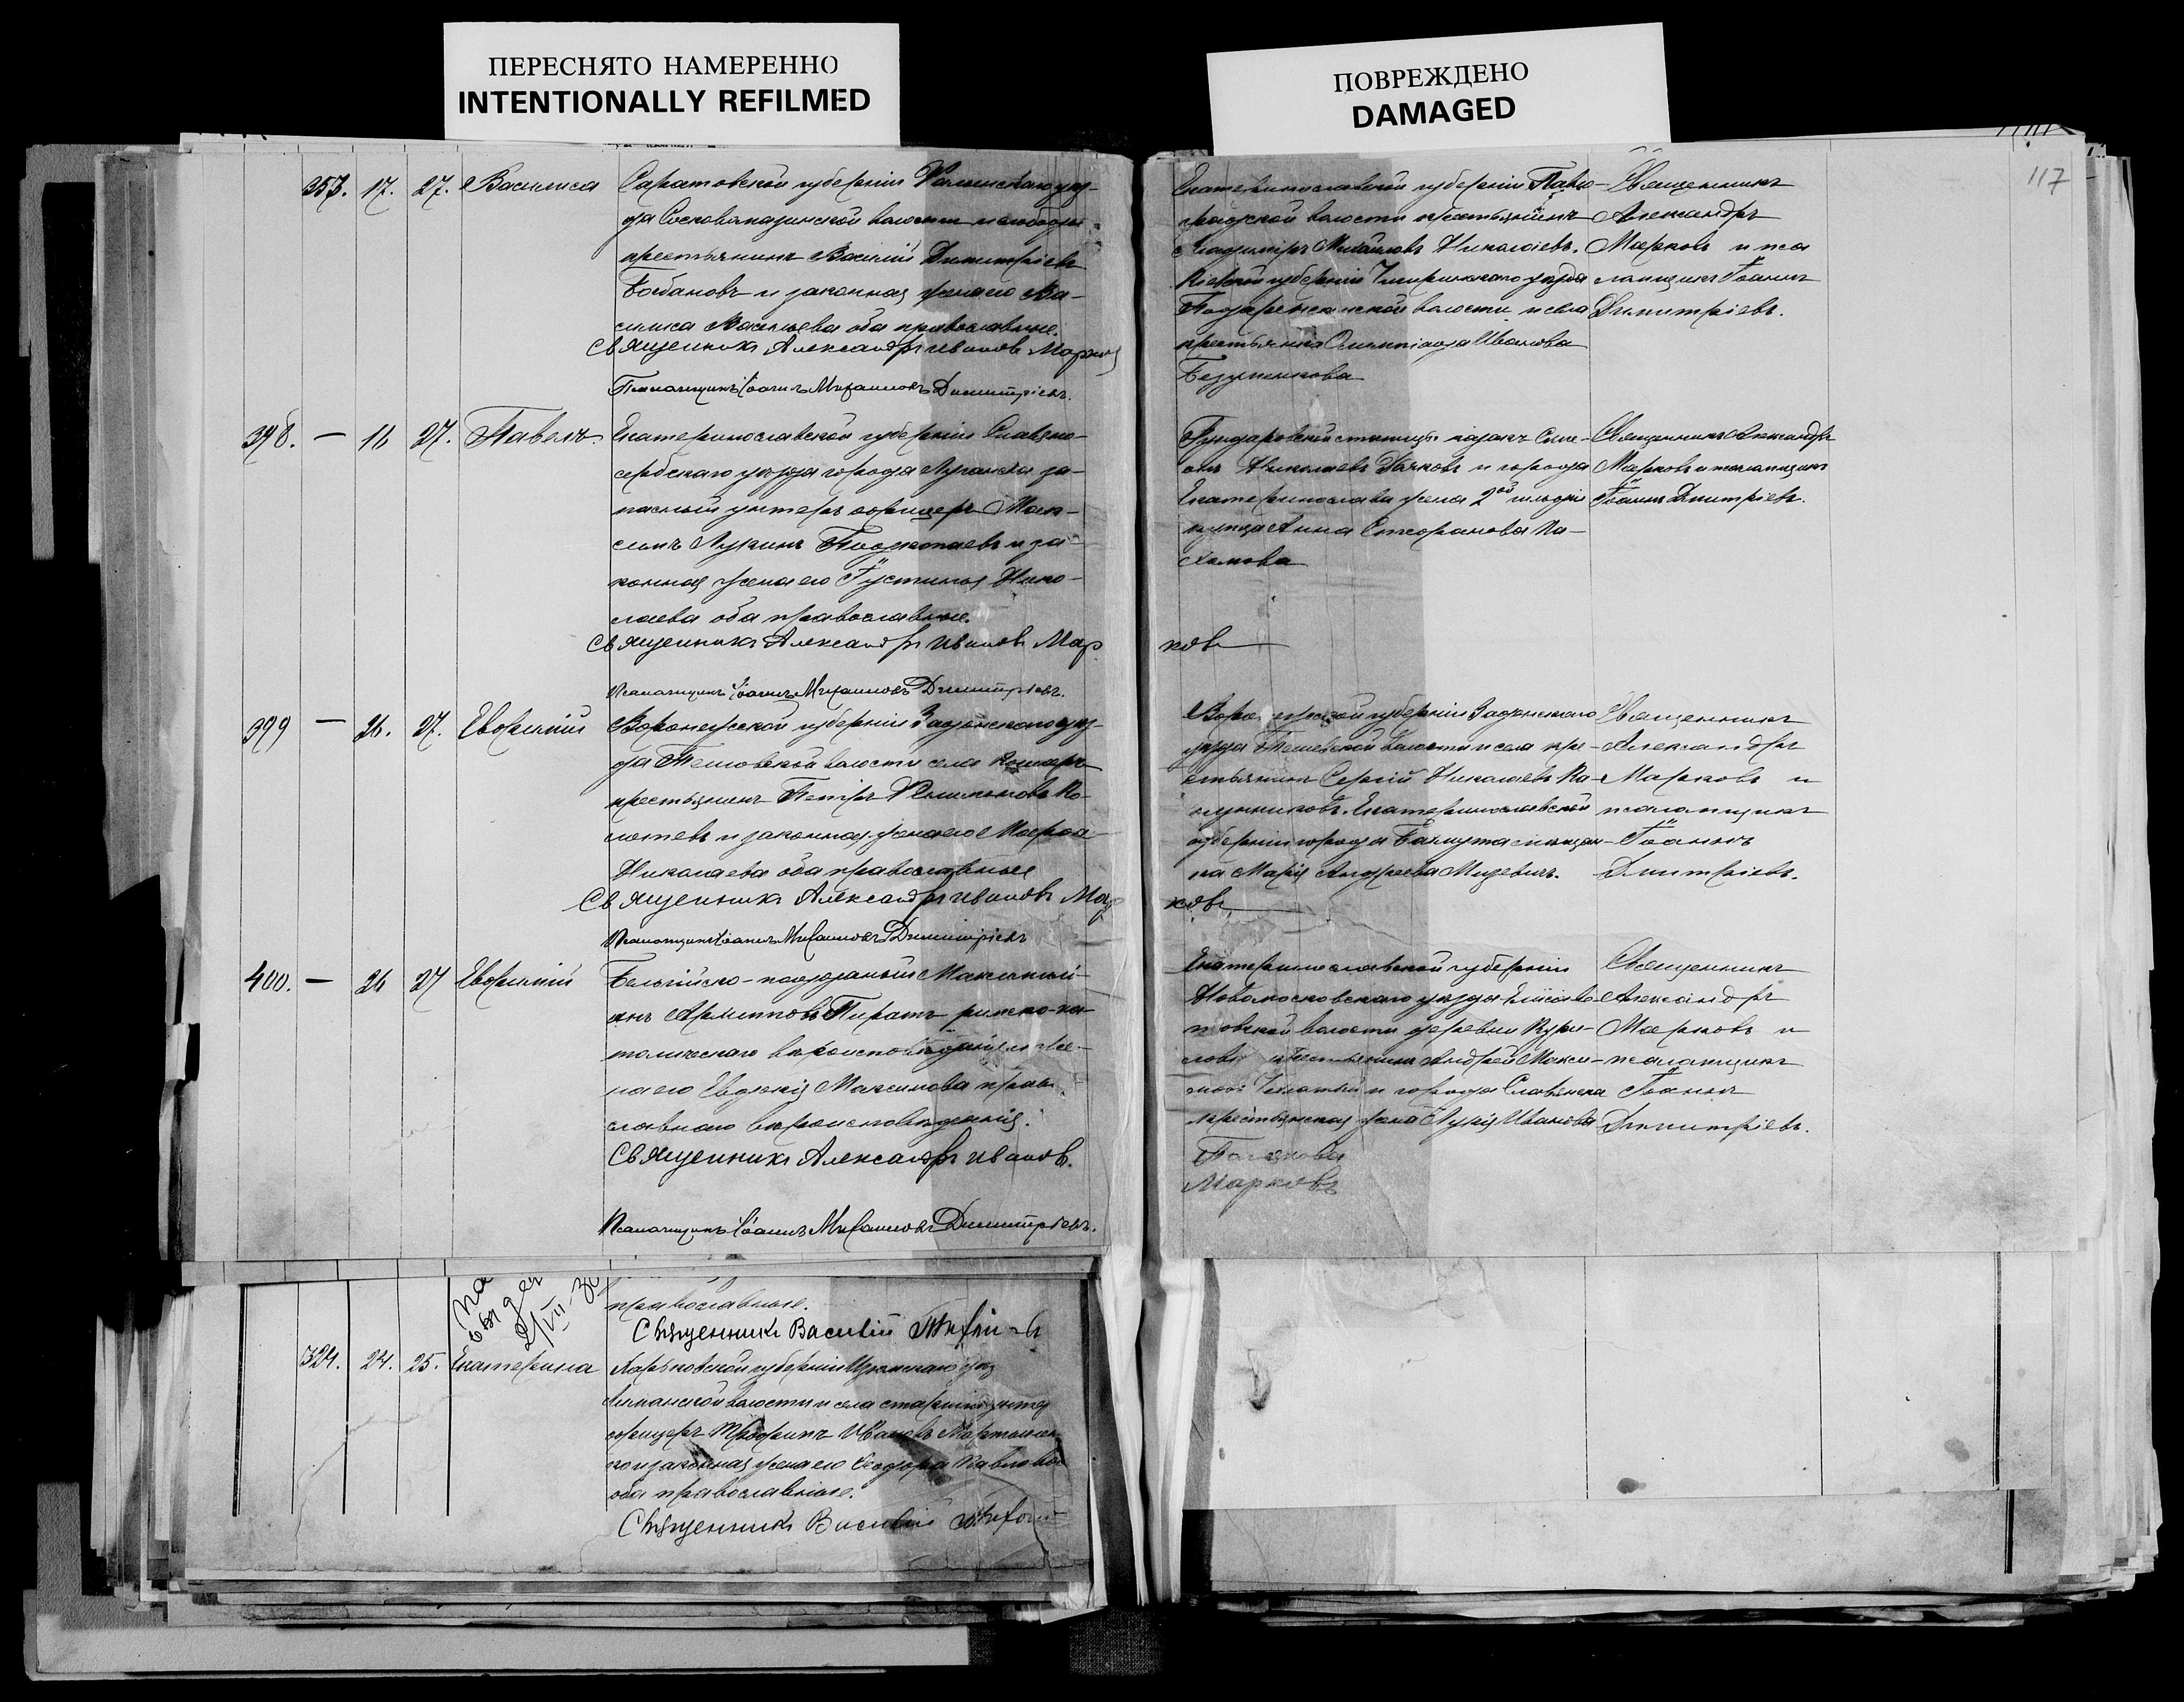 ПЕРЕСНЯТО НАМЕРЕННО
INTENTIONALLY REFILMED
ПОВРЕЖДЕНО
DAMAGED
117
357. 17. 27. Василиса
Саратовской губерніи уѣз-
да волости и слободы
крестьянинъ Василій Димитріевъ
и законная жена его Ва-
силиса Васильева оба православные.
Священникъ Александръ Ивановъ Марковъ
Псаломщикъ Іоаннъ Михаиловъ Димитріевъ.
Екатеринославской губерніи Павло-
градской волости крестьянинъ
Владиміръ Михайловъ Николаевъ.
Кіевской губерніи Чигиринскаго уѣзда
волости и села
крестьянка Олимпіада Иванова
Безуменкова
Священникъ
Александръ
Марковъ и пса
ломщикъ Іоаннъ
Димитріевъ.
398. — 16 27. Павелъ.
Екатеринославской губерніи Славяно-
сербскаго уѣзда города Луганска за-
пасный унтеръ офицеръ Мак-
симъ Лукинъ Подкопаевъ и за-
конная жена его Іустинія Нико-
лаева оба православные.
Священникъ Александръ Ивановъ Мар
ковъ
Псаломщикъ Іоаннъ Михаиловъ Димитріевъ.
Гундаровской станицы казакъ Симе-
онъ Николаевъ и города
Екатеринослава жена 2ой гильдіи
купца Анна Стефанова Па-
хомова
Священникъ Александръ
Марковъ и псаломщикъ
Іоаннъ Димитріевъ.
399 — 26. 27. Евфимій
Воронежской губерніи Задонскаго уѣз-
да волости села
крестьянинъ Петръ Филимоновъ Ко-
и законная жена его Марѳа
Николаева оба православные
Священникъ Александръ Ивановъ Мар
ковъ
Псаломщикъ Іоаннъ Михаиловъ Димитріевъ
Воронежской губерніи Задонскаго
уѣзда волости и села кре-
стьянинъ Сергій Николаевъ Ка-
Екатеринославской
губерніи города Бахмута мѣщан-
ка Марія Андреева Мицевичъ.
Священникъ
Александръ
Марковъ и
псаломщикъ
Іоаннъ
Димитріевъ.
400. — 26 27 Евфимій
Бельгійско-подданный Максимилі-
анъ Пиратъ римско-ка-
толическаго вѣроисповѣданія и же-
на его Евдокія Максимова право
славнаго вѣроисповѣданія.
Священникъ Александръ Ивановъ.
Марковъ
Псаломщикъ Іоаннъ Михаиловъ Димитріевъ.
Екатеринославской губерніи
Новомосковскаго уѣзда Елисаве
товской волости деревни
крестьянинъ Андрей Макси-
мовъ и города Славянска
крестьянская жена Лукія Иванова
Священникъ
Александръ
Марковъ и
псаломщикъ
Іоаннъ
Димитріевъ.
православные.
Священникъ Василій
324. 24. 25. Екатерина
Харьковской губерніи Изюмскаго уѣз
Лиманской волости и села старшій унтер
офицеръ Трофимъ Ивановъ Мартынен
ко и законная жена его Ѳеодора Павлова
оба православные.
Священникъ Василій